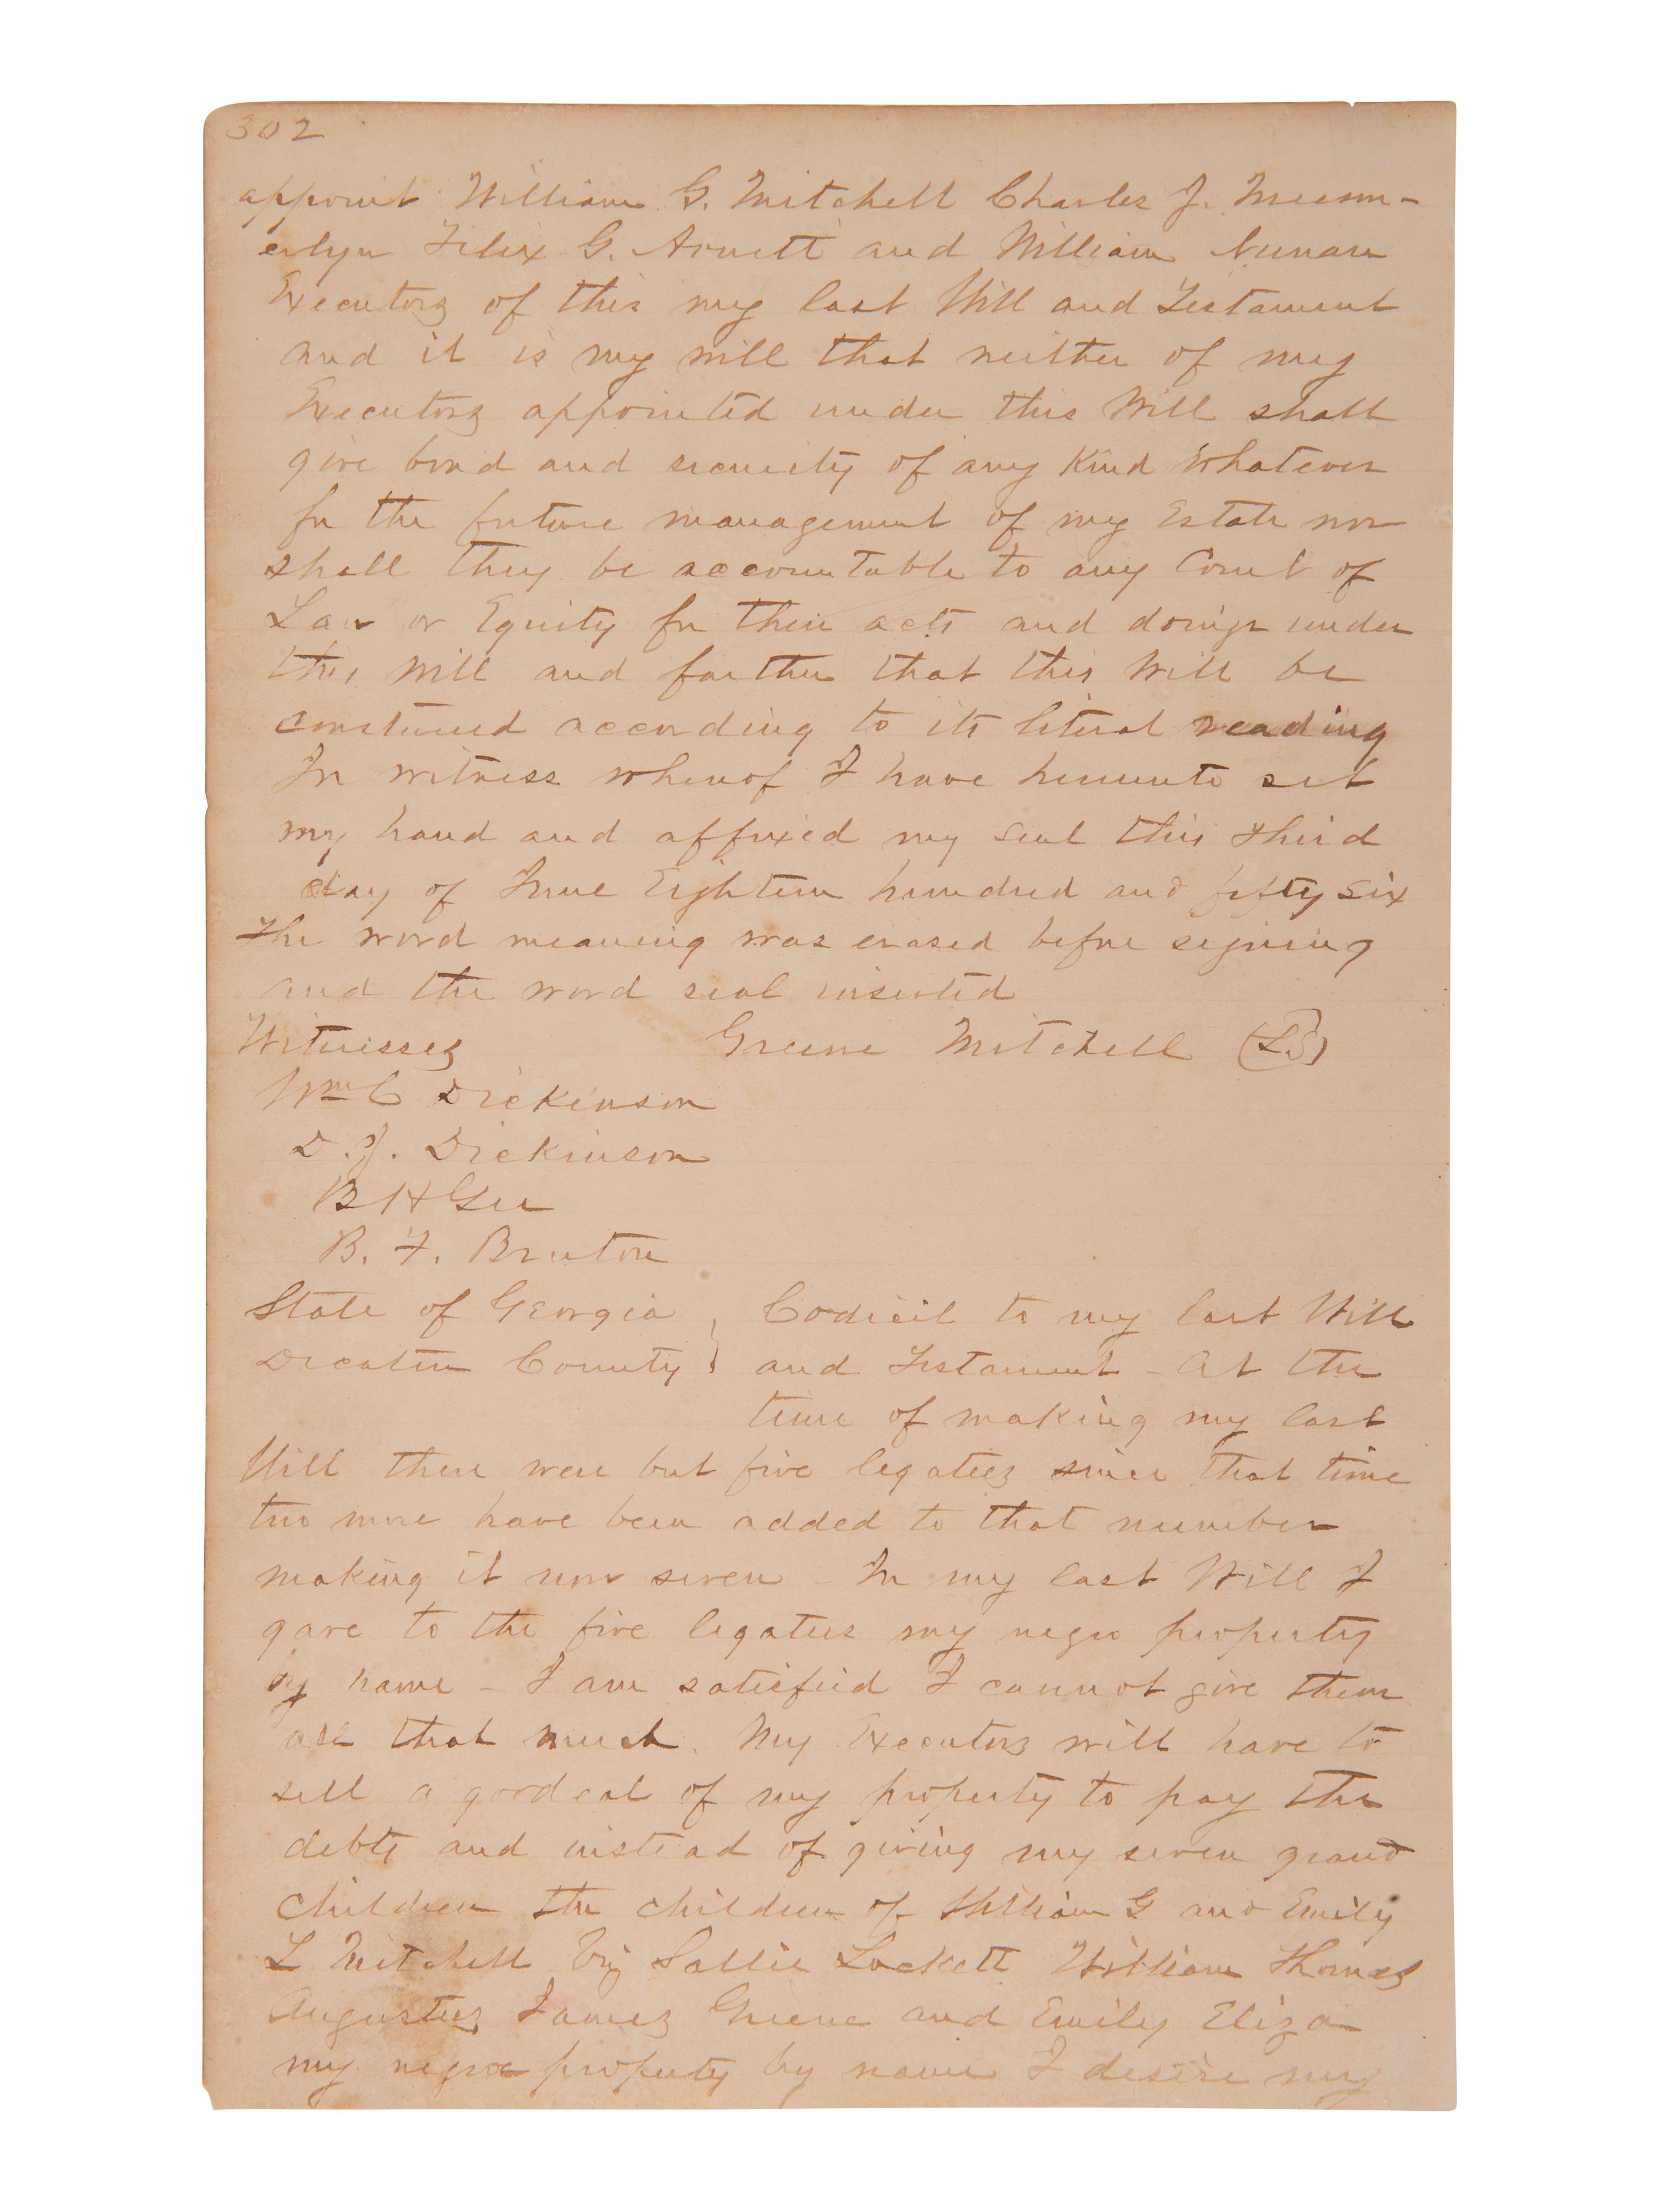 302
appoint William G. Mitchell Charles J. Munn-
erlyn Felix G. Arnett and William Nunan
Executors of this my last Will and Testament
and it is my will that neither of my
Executors appointed under this Will shall
give bond and security of any Kind Whatever
for the future management of my Estate nor
shall they be accountable to any Court of
Law or Equity for their acts and doings under
this Will and farther that this Will be
construed according to its literal reading
In witness whereof I have hereunto set
my hand and affixed my seal this third
day of June Eighteen hundred and fifty six
The word meaning was erased before signing
and the word seal inserted
Witnesses Greene Mitchell (LS)
Wm C Dickinson
D. J. Dickinson
B H Gee
B. F. Bruton
State of Georgia } Codicil to my last Will
Decatur County } and Testament - At the
time of making my last
Will there were but five legatees since that time
two more have been added to that number
making it now seven - In my last Will I
gave to the five legatees my negro property
by name - I am satisfied I cannot give them
all that much. My Executors will have to
sell a good eal of my property to pay the
debts and instead of giving my seven grand
children the children of William G and Emily
L Mitchell Viz Sallie Lockett William Thomas
Augustus James Greene and Emily Eliza
my negro property by name I desire my